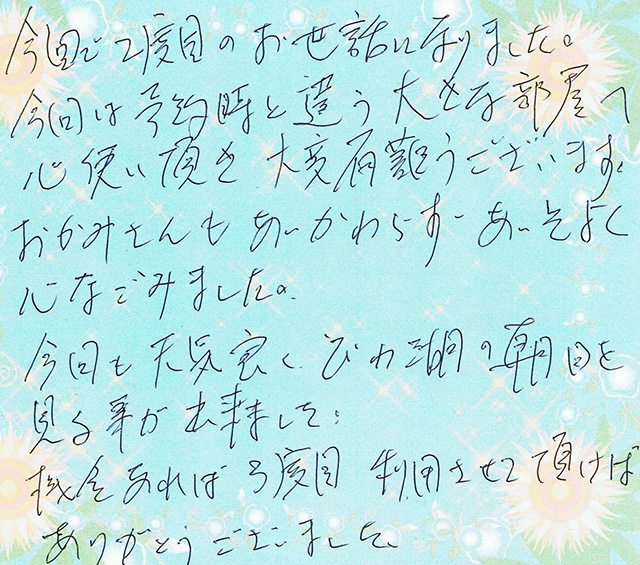 今回で2度目のお世話になりました。
今回は予約時と違う大きな部屋へ
心使い頂き 大変有難うございます。
おかみさんもあいかわらず あいそよく
心なごみました。
今回も天気良く びわ湖の朝日を
見る事が出来まして:
機会あれば3度目 利用させて頂けば
ありがとうございました。